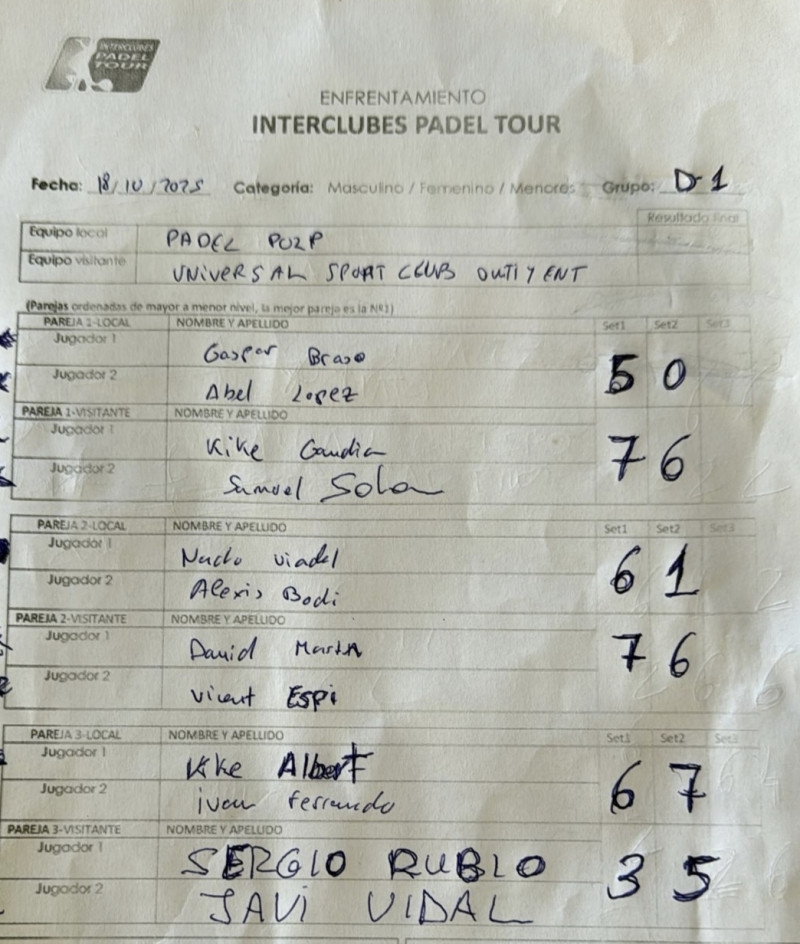 INTERCLUBES
PADEL
TOUR
ENFRENTAMIENTO
INTERCLUBES PADEL TOUR
Fecha: 18/10/2025 Categoría: Masculino / Femenino / Menores Grupo: D-1
Resultado final
Equipo local PADEL POZP
Equipo visitante UNIVERSAL SPORT CLUB ONTIYENT
(Parejas ordenadas de mayor a menor nivel, la mejor pareja es la Nº1)
PAREJA 1-LOCAL NOMBRE Y APELLIDO Set1 Set2 Set3
Jugador 1 Gaspar Braso
Jugador 2 Abel Lopez
5 0
PAREJA 1-VISITANTE NOMBRE Y APELLIDO
Jugador 1 Kike Gandia
Jugador 2 Samuel
7 6
PAREJA 2-LOCAL NOMBRE Y APELLIDO Set1 Set2 Set3
Jugador 1 Nacho Viadel
Jugador 2 Alexis Bodi
6 1
PAREJA 2-VISITANTE NOMBRE Y APELLIDO
Jugador 1 David
Jugador 2 Vicent Espi
7 6
PAREJA 3-LOCAL NOMBRE Y APELLIDO Set1 Set2 Set3
Jugador 1 Kike Albert
Jugador 2 ivan Ferrando
6 7
PAREJA 3-VISITANTE NOMBRE Y APELLIDO
Jugador 1 SERGIO RUBIO
Jugador 2 JAVI VIDAL
3 5